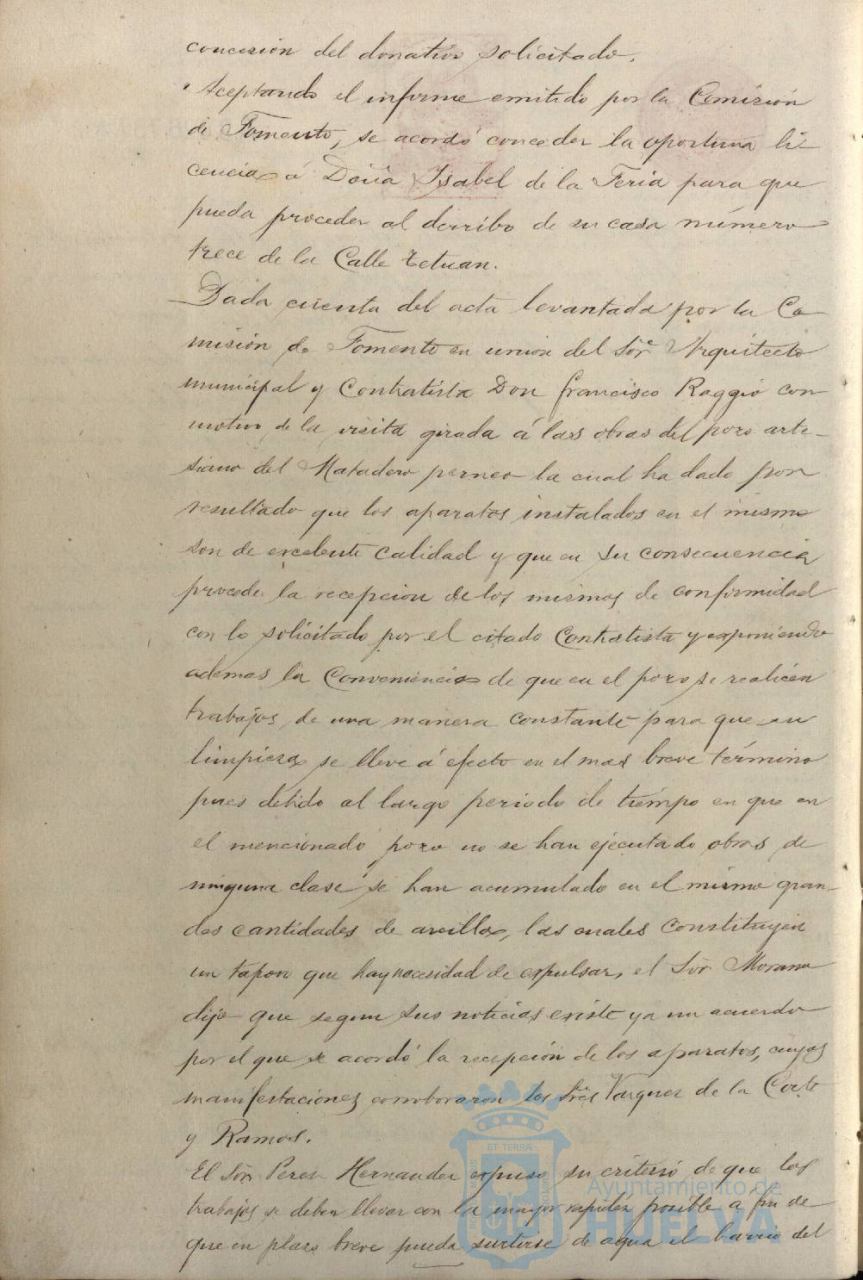 concesión del donativo solicitado.
Aceptando el informe emitido por la Comisión
de Fomento, se acordó conceder la oportuna li
cencia á Doña Ysabel de la Feria para que
pueda proceder al derribo de su casa número
trece de la Calle Tetuan.
Dada cuenta del acta levantada por la Co-
misión de Fomento en union del Sor. Arquitecto
municipal y Contratista Don Francisco Raggio con
motivo de la visita girada á las obras del pozo arte-
siano del Matadero perneo la cual ha dado por
resultado que los aparatos instalados en el mismo
son de excelente calidad y que en su consecuencia
procede la recepcion de los mismos de conformidad
con lo solicitado por el citado Contratista y exponiendo
ademas la conveniencia de que en el pozo se realicen
trabajos de una manera constante para que su
limpieza se lleve á efecto en el mas breve término
pues debido al largo periodo de tiempo en que en
el mencionado pozo no se han ejecutado obras de
ninguna clase se han acumulado en el mismo gran-
des cantidades de arcilla, las cuales constituyen
un tapon que hay necesidad de expulsar, el Sor. Morano
dijo que segun sus noticias existe ya un acuerdo
por el que se acordó la recepción de los aparatos, cuyas
manifestaciones corroboraron los Sres Vazquez de la Corte
y Ramos.
El Sor. Perez Hernandez expuso su criterio de que los
trabajos se deben llevar con la mayor rapidez posible a fin de
que en plazo breve pueda surtirse de agua el barrio del
Ayuntamiento de
HUELVA